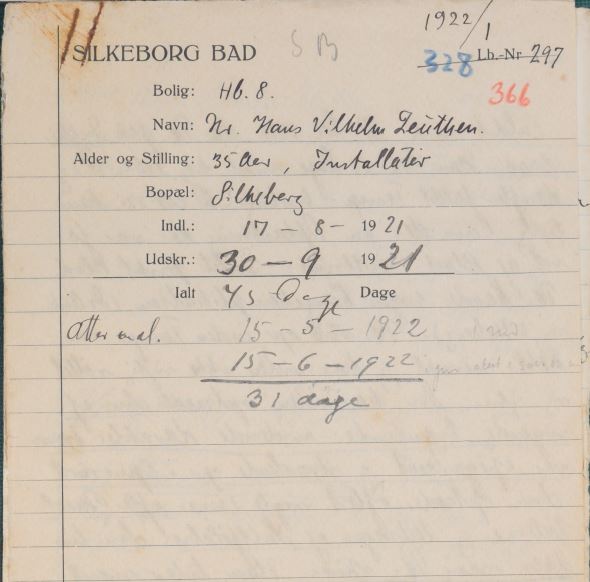 1922/1
SILKEBORG BAD SB
328 Lb.-Nr 297
366
Bolig: Hb. 8.
Navn: Hr. Hans Vilhelm Zeuthen.
Alder og Stilling: 35 Aar, Installatør
Bopæl: Silkeborg
Indl.: 17 - 8 - 1921
Udskr.: 30 - 9 1921
Ialt 45 Dage Dage
Atter indl. 15 - 5 - 1922
15 - 6 - 1922
31 dage